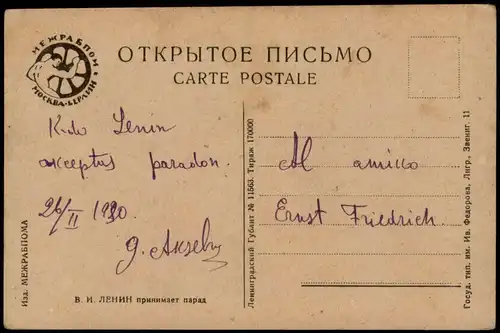 МЕЖРАБПОМ
МОСКВА-БЕРЛИН
ОТКРЫТОЕ ПИСЬМО
CARTE POSTALE
K-do Lenin
akceptas paradon.
26/II 1930.
Al amiko
Ernst Friedrich
В. И. ЛЕНИН принимает парад
Изд. МЕЖРАБПОМА
Ленинградский Гублит № 11563. Тираж 170000
Госуд. тип. им. Ив. Федорова, Лнгр., Звениг. 11